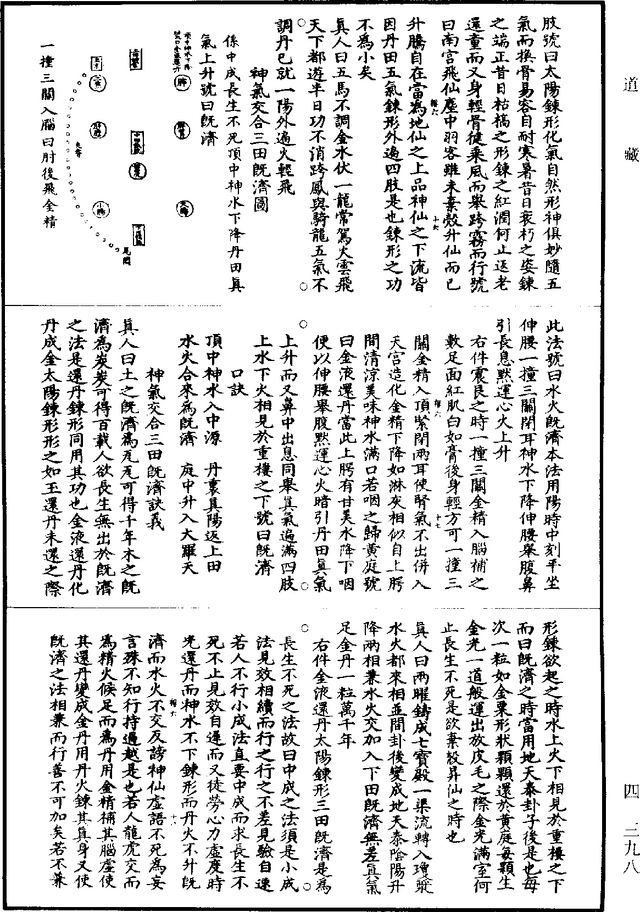 道藏
肢號曰太陽鍊形化氣自然形神俱妙隨五
氣而換骨易容自耐寒暑昔日衰朽之姿鍊
之端正昔日枯槁之形鍊之紅潤何止返老
還童而又身輕骨健乘風而舉跨霧而行號
曰南宮飛仙塵中羽客雖未棄殼升仙而已
升騰自在當為地仙之上品神仙之下流皆
因丹田五氣鍊形外過四肢是也鍊形之功
不為小矣
真人曰五馬不調金水伏一龍常駕火雲飛
天下都遊半日功不消跨鳳與騎龍五氣不
調丹已就一陽外過火輕飛
神氣交合三田既濟圖
係中成長生不死頂中神水下降丹田真
氣上升號曰既濟
一撞三關入腦曰肘後飛金精
此法號曰水火既濟本法用陽時中刻平坐
伸腰一撞三關閉耳神水下降伸腰舉腹鼻
引長息默運心火上升
右件震艮之時一撞三關金精入腦補之
數足面紅肌白如膏後身輕方可一撞三
關金精入頂緊閉兩耳使腎氣不出併入
天宮造化金精下降如淋灰相似自上腭
間清涼美味神水滿口若咽之歸黃庭號
曰金液還丹當此上腭有甘美水降下咽
便以伸腰舉腹默運心火暗引丹田真氣
上升而又鼻中出息同舉真氣遍滿四肢
上水下火相見於重樓之下號曰既濟
口訣
頂中神水入中源 丹裏真陽返上田
水火合來為既濟 庭中升入大羅天
神氣交合三田既濟訣義
真人曰土之既濟為瓦瓦可得千年木之既
濟為炭炭可得百載人欲長生無出於既濟
之法是還丹鍊形同用其功也金液還丹化
丹成金太陽鍊形形之如玉還丹未還之際
形鍊欲起之時水上火下相見於重樓之下
而曰既濟之時當用地天泰卦子後是也每
次一粒如金粟形狀顆顆還於黃庭每顆生
金光一道般運出放皮毛之際金光滿室何
止長生不死是欲棄殼昇仙之時也
真人曰兩曜鑄成七寶殿一渠流轉入瓊漿
水火都來相並間卦後變成地天泰陰陽升
降兩相兼水火交加入下田既濟無差真氣
足金丹一粒萬千年
右件金液還丹太陽鍊形三田既濟是為
長生不死之法故曰中成之法須是小成
法見效相續而行之行之不差見驗自速
若人不行小成法直要中成而求長生不
死不止見效自遲而又徒勞心力虛度時
光還丹而神水不下鍊形而丹火不升既
濟而水火不交反謗神仙虛語不死為妄
言殊不知行持過越是也若人龍虎交而
為精火候足而為丹用金精補其腦虛使
其還丹變成金丹用丹火鍊其真身又使
既濟之法相兼而行善不可加矣若不兼
四-三九八